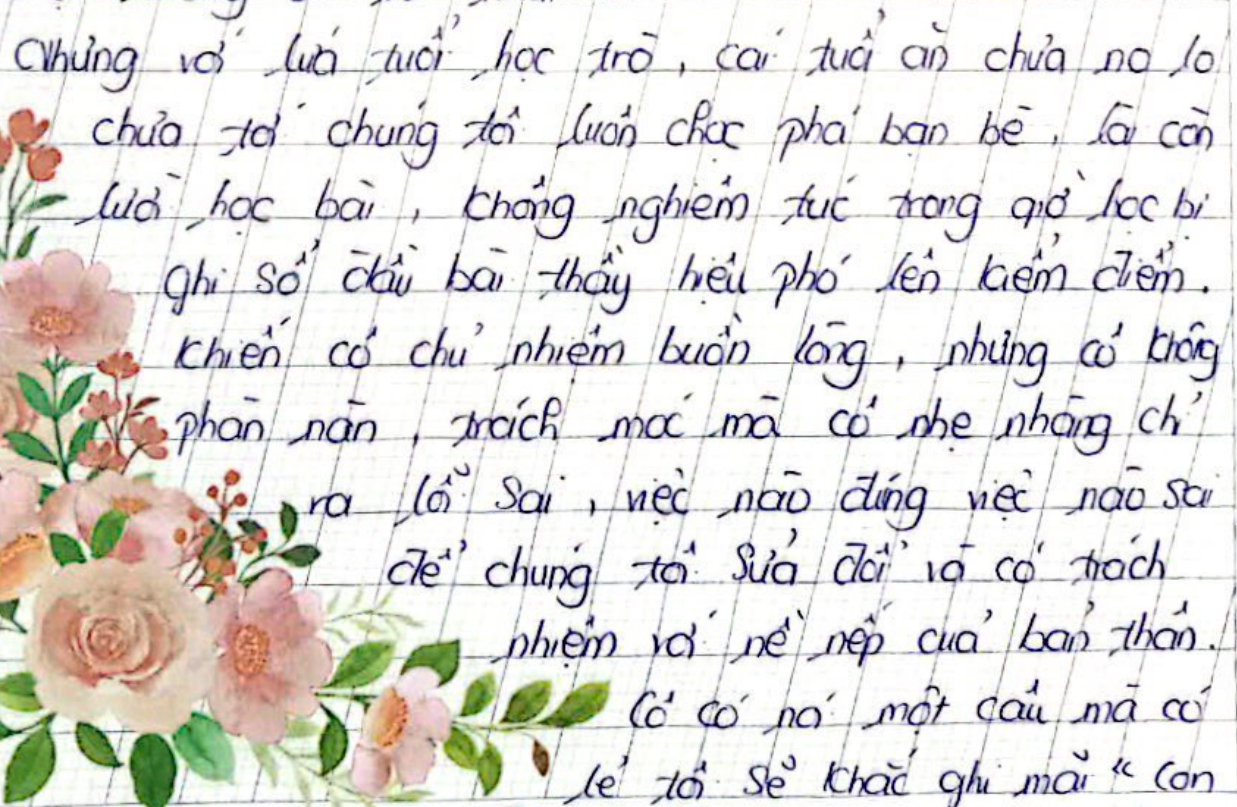 Nhưng với lứa tuổi học trò, cái tuổi ăn chưa no lo
chưa tới chúng tôi luôn chọc phá bạn bè, lại còn
lười học bài, không nghiêm túc trong giờ học bị
ghi sổ đầu bài thầy hiệu phó lên kiểm điểm.
Khiến cô chủ nhiệm buồn lòng, nhưng cô không
phàn nàn, trách móc mà cô nhẹ nhàng chỉ
ra lỗi sai, việc nào đúng việc nào sai
để chúng tôi sửa đổi và có trách
nhiệm với nề nếp của bản thân.
Cô có nói một câu mà có
lẽ tôi sẽ khắc ghi mãi "Con